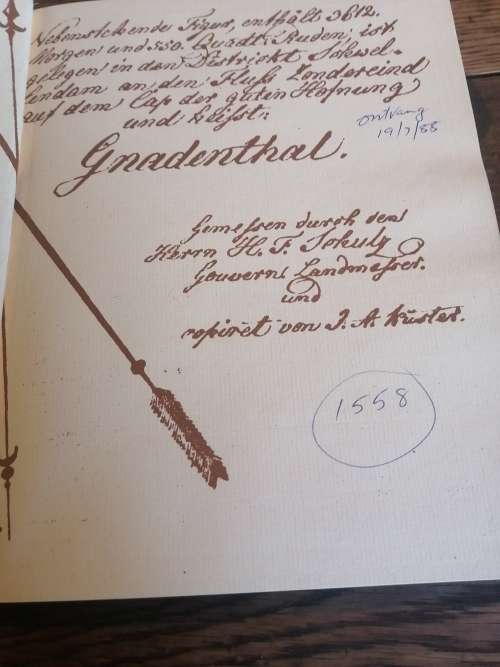 Nebenstehende Figur, enthält 3612.
Morgen und 550. Quadt: Ruden, ist
gelegen in den Districkt Schwel-
lendam an den Fluß Zondereind
auf dem Cap der guten Hofnung
und heisst:
Gnadenthal.
ontvang
19/7/88
Gemessen durch den
Herrn H. F. Schulz
Gouvern: Landmesser.
und
copiret von J. A. Küster.
1558